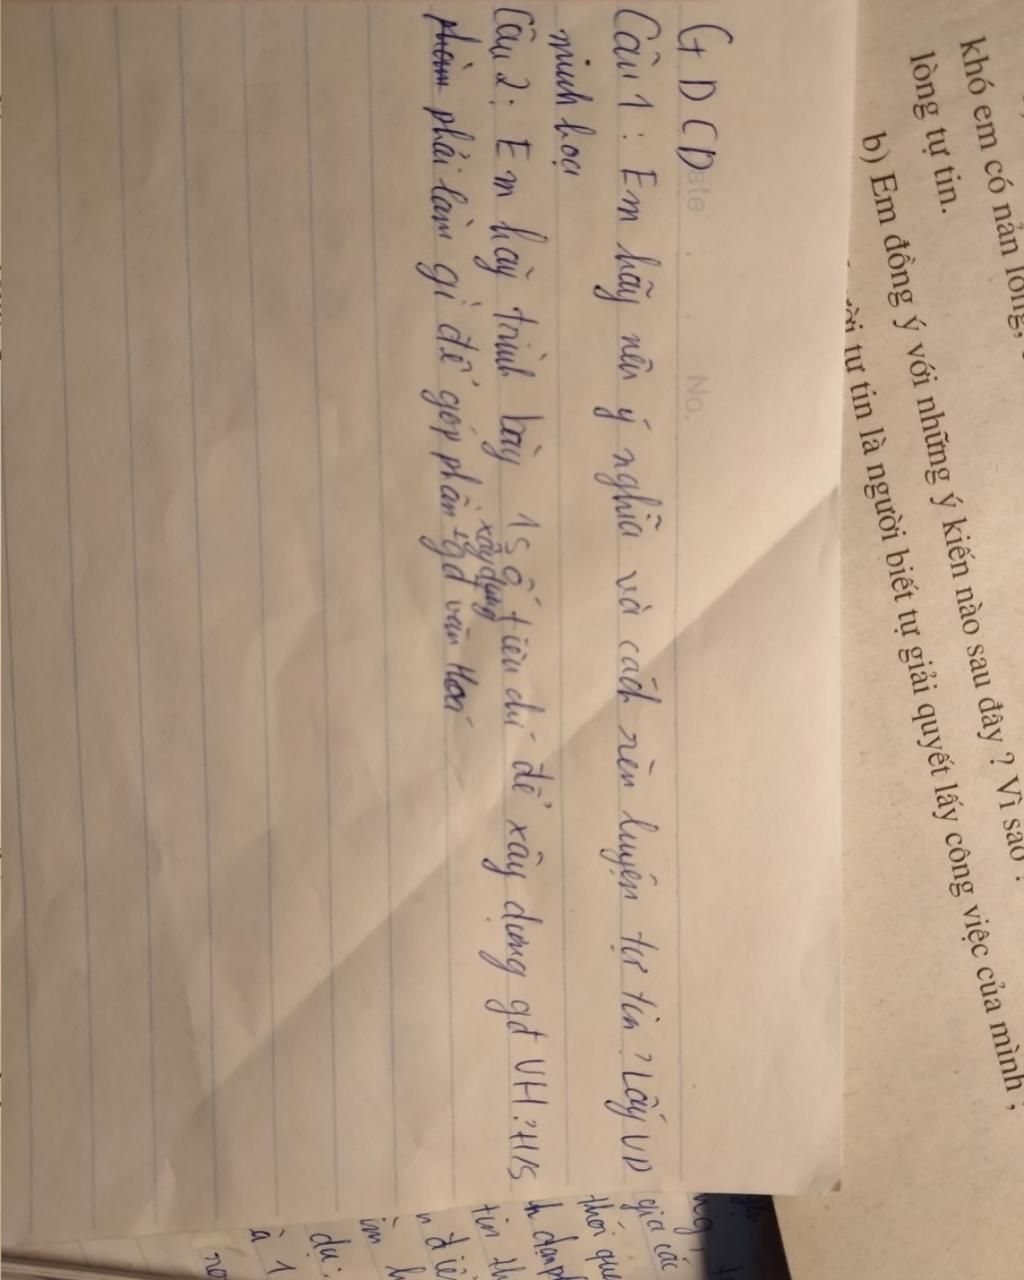 khó em có nản lòng,
lòng tự tin.
b) Em đồng ý với những ý kiến nào sau đây ? Vì sao ?
tự tin là người biết tự giải quyết lấy công việc của mình ;
Date No.
GDCD
Câu 1 : Em hãy nêu ý nghĩa và cách rèn luyện tự tin ? Lấy VD
minh họa
Câu 2 : Em hãy trình bày 1 số tiêu chí để xây dựng gđ VH ? H/S
phải làm gì để góp phần xây dựng gđ văn hoá